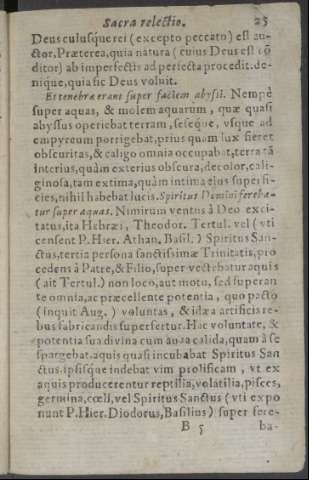 Sacra relectio. 25
Deus cuiusque rei (excepto peccato) est au-
ctor. Præterea, quia natura (cuius Deus est cō
ditor) ab imperfectis ad perfecta procedit. de-
nique, quia sic Deus voluit.
Et tenebræ erant super faciem abyssi. Nempè
super aquas, & molem aquarum, quæ quasi
abyssus operiebat terram, seseque, vsque ad
empyreum porrigebat, prius quam lux fieret
obscuritas, & caligo omnia occupabat, terra tā
interius, quàm exterius obscura, decolor, cali-
ginosa, tam extima, quàm intima eius superfi-
cies, nihil habebat lucis. Spiritus Domini fereba-
tur super aquas. Nimirum ventus à Deo exci-
tatus, ita Hebræi, Theodor. Tertul. vel (vti
censent P. Hier. Athan. Basil.) Spiritus San-
ctus, tertia persona sanctissimæ Trinitatis, pro
cedens à Patre, & Filio, super vectebatur aquis
(ait Tertul.) non loco, aut motu, sed superan
te omnia, ac præcellente potentia, quo pacto
(inquit Aug.) voluntas, & idæa artificis re-
bus fabricandis superfertur. Hac voluntate, &
potentia sua divina cum aura calida, quam à se
spargebat. aquis quasi incubabat Spiritus San
ctus. ipsisque indebat vim prolificam, vt ex
aquis producerentur reptilia, volatilia, pisces,
germina, cœli, vel Spiritus Sanctus (vti expo
nunt P. Hier. Diodorus, Basilius) super fere-
B 5 ba-